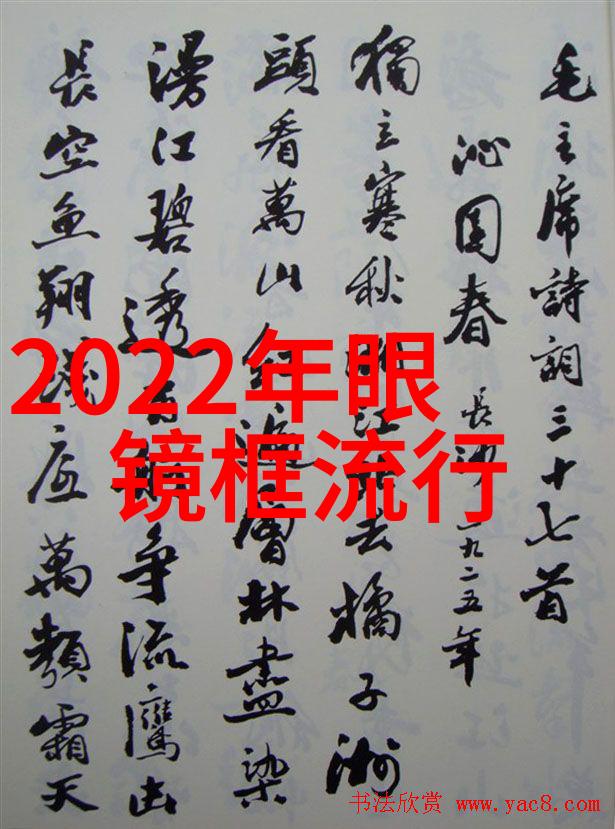 毛主席詩詞三十七首
沁园春 長沙 一九二五年
獨立寒秋湘江北去橘子洲
頭看萬山紅遍層林盡染
漫江碧透百舸争流鷹击
長空魚翔淺底萬類霜天
2022年眼
镜框流行
书法欣赏 www.yac8.com